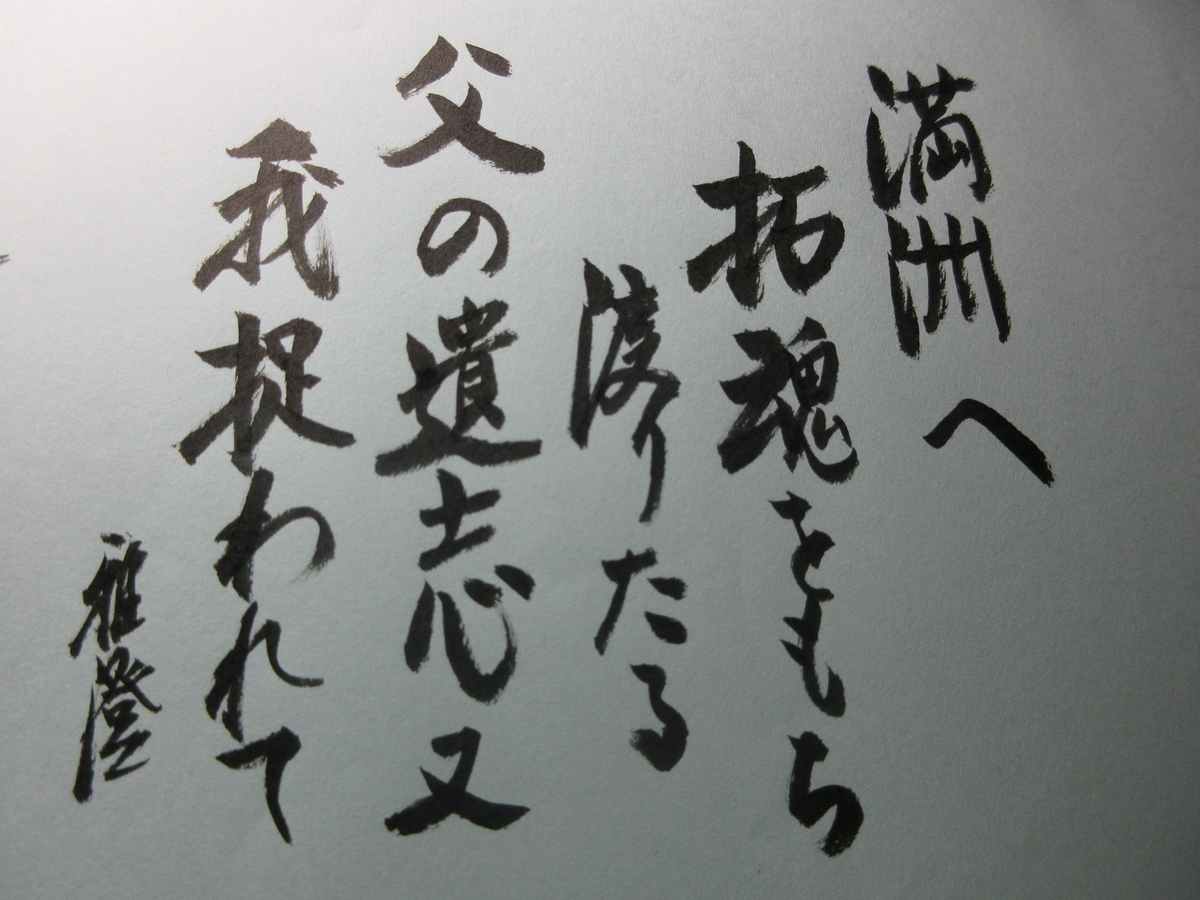 満洲へ
拓魂をもち
渡りたる
父の遺志又
我捉われて
雅澄